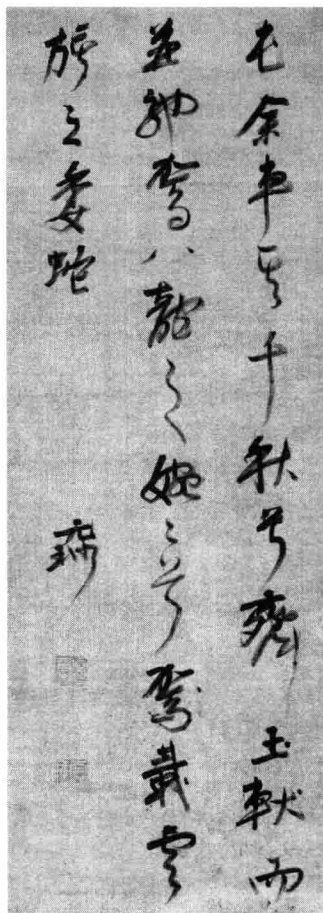 屯余車其千秋兮齊玉軑而
並馳駕八龍之婉〻兮駕載雲
旗之委蛇